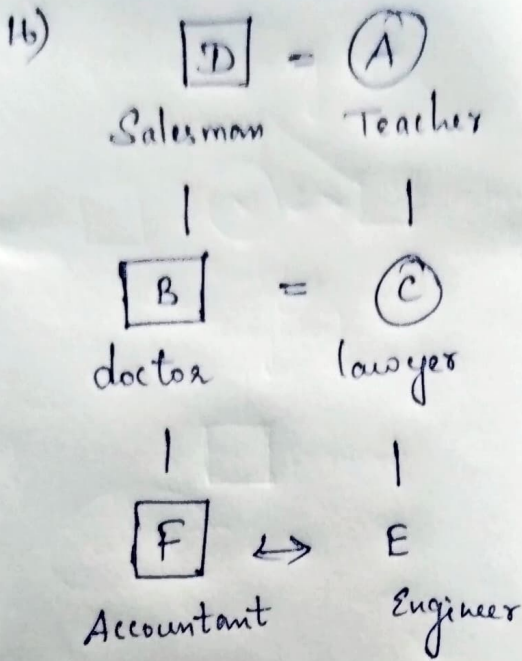 16)
D - A
Salesman Teacher
| |
B = C
doctor lawyer
| |
F ↔ E
Accountant Engineer